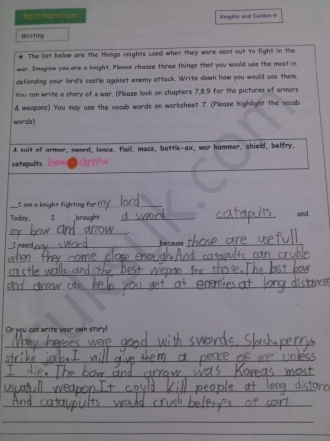 Knights and Castles-9
Writing
★ The list below are the things knights used when they were sent out to fight in the
war. Imagine you are a knight. Please choose three things that you would use the most in
defending your lord's castle against enemy attack. Write down how you would use them.
You can write a story of a war. (Please look on chapters 7,8,9 for the pictures of armors
& weapons) You may use the vocab words on worksheet 7. (Please highlight the vocab
words)
A suit of armor, sword, lance, flail, mace, battle-ax, war hammer, shield, belfry,
catapults bow arrow
I am a knight fighting for my lord
Today, I brought a sword catapults and
my bow and arrow
I need my sword because those are usefull
when they come close enough. And catapults can cruble
castle walls and the best wepan for those. The last bow
and arrow can help you get at enemies at long distance
Or you can write your own story!
Many heroes were good with swords, Slash, perry,
strike jab. I will give them a peace of me unless
I die. The bow and arrow was Koreas most
usuafull weapon. It could kill people at long distance
And cataupults would crush belfry's of